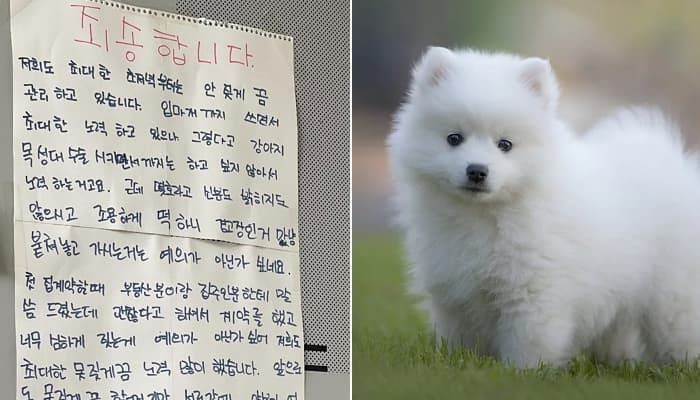 죄송합니다.
저희도 최대한 초저녁부터는 안 짖게끔
관리 하고 있습니다. 입마개까지 쓰면서
최대한 노력 하고 있으나 그렇다고 강아지
목성대 수술 시키면서까지는 하고 싶지 않아서
노력 하는거고요. 근데 몇호라고 신분도 밝히지도
않으시고 조용하게 떡 하니 경고장인거 마냥
붙여놓고 가시는거는 예의가 아닌가 싶네요.
첫 집계약할때 부동산분이랑 집주인분한테 말
씀 드렸는데 괜찮다고 하셔서 계약을 했고
너무 심하게 짖는게 예의가 아닌가 싶어 저희도
최대한 못짖게끔 노력 많이 했습니다. 앞으로
도 못짖게 끔